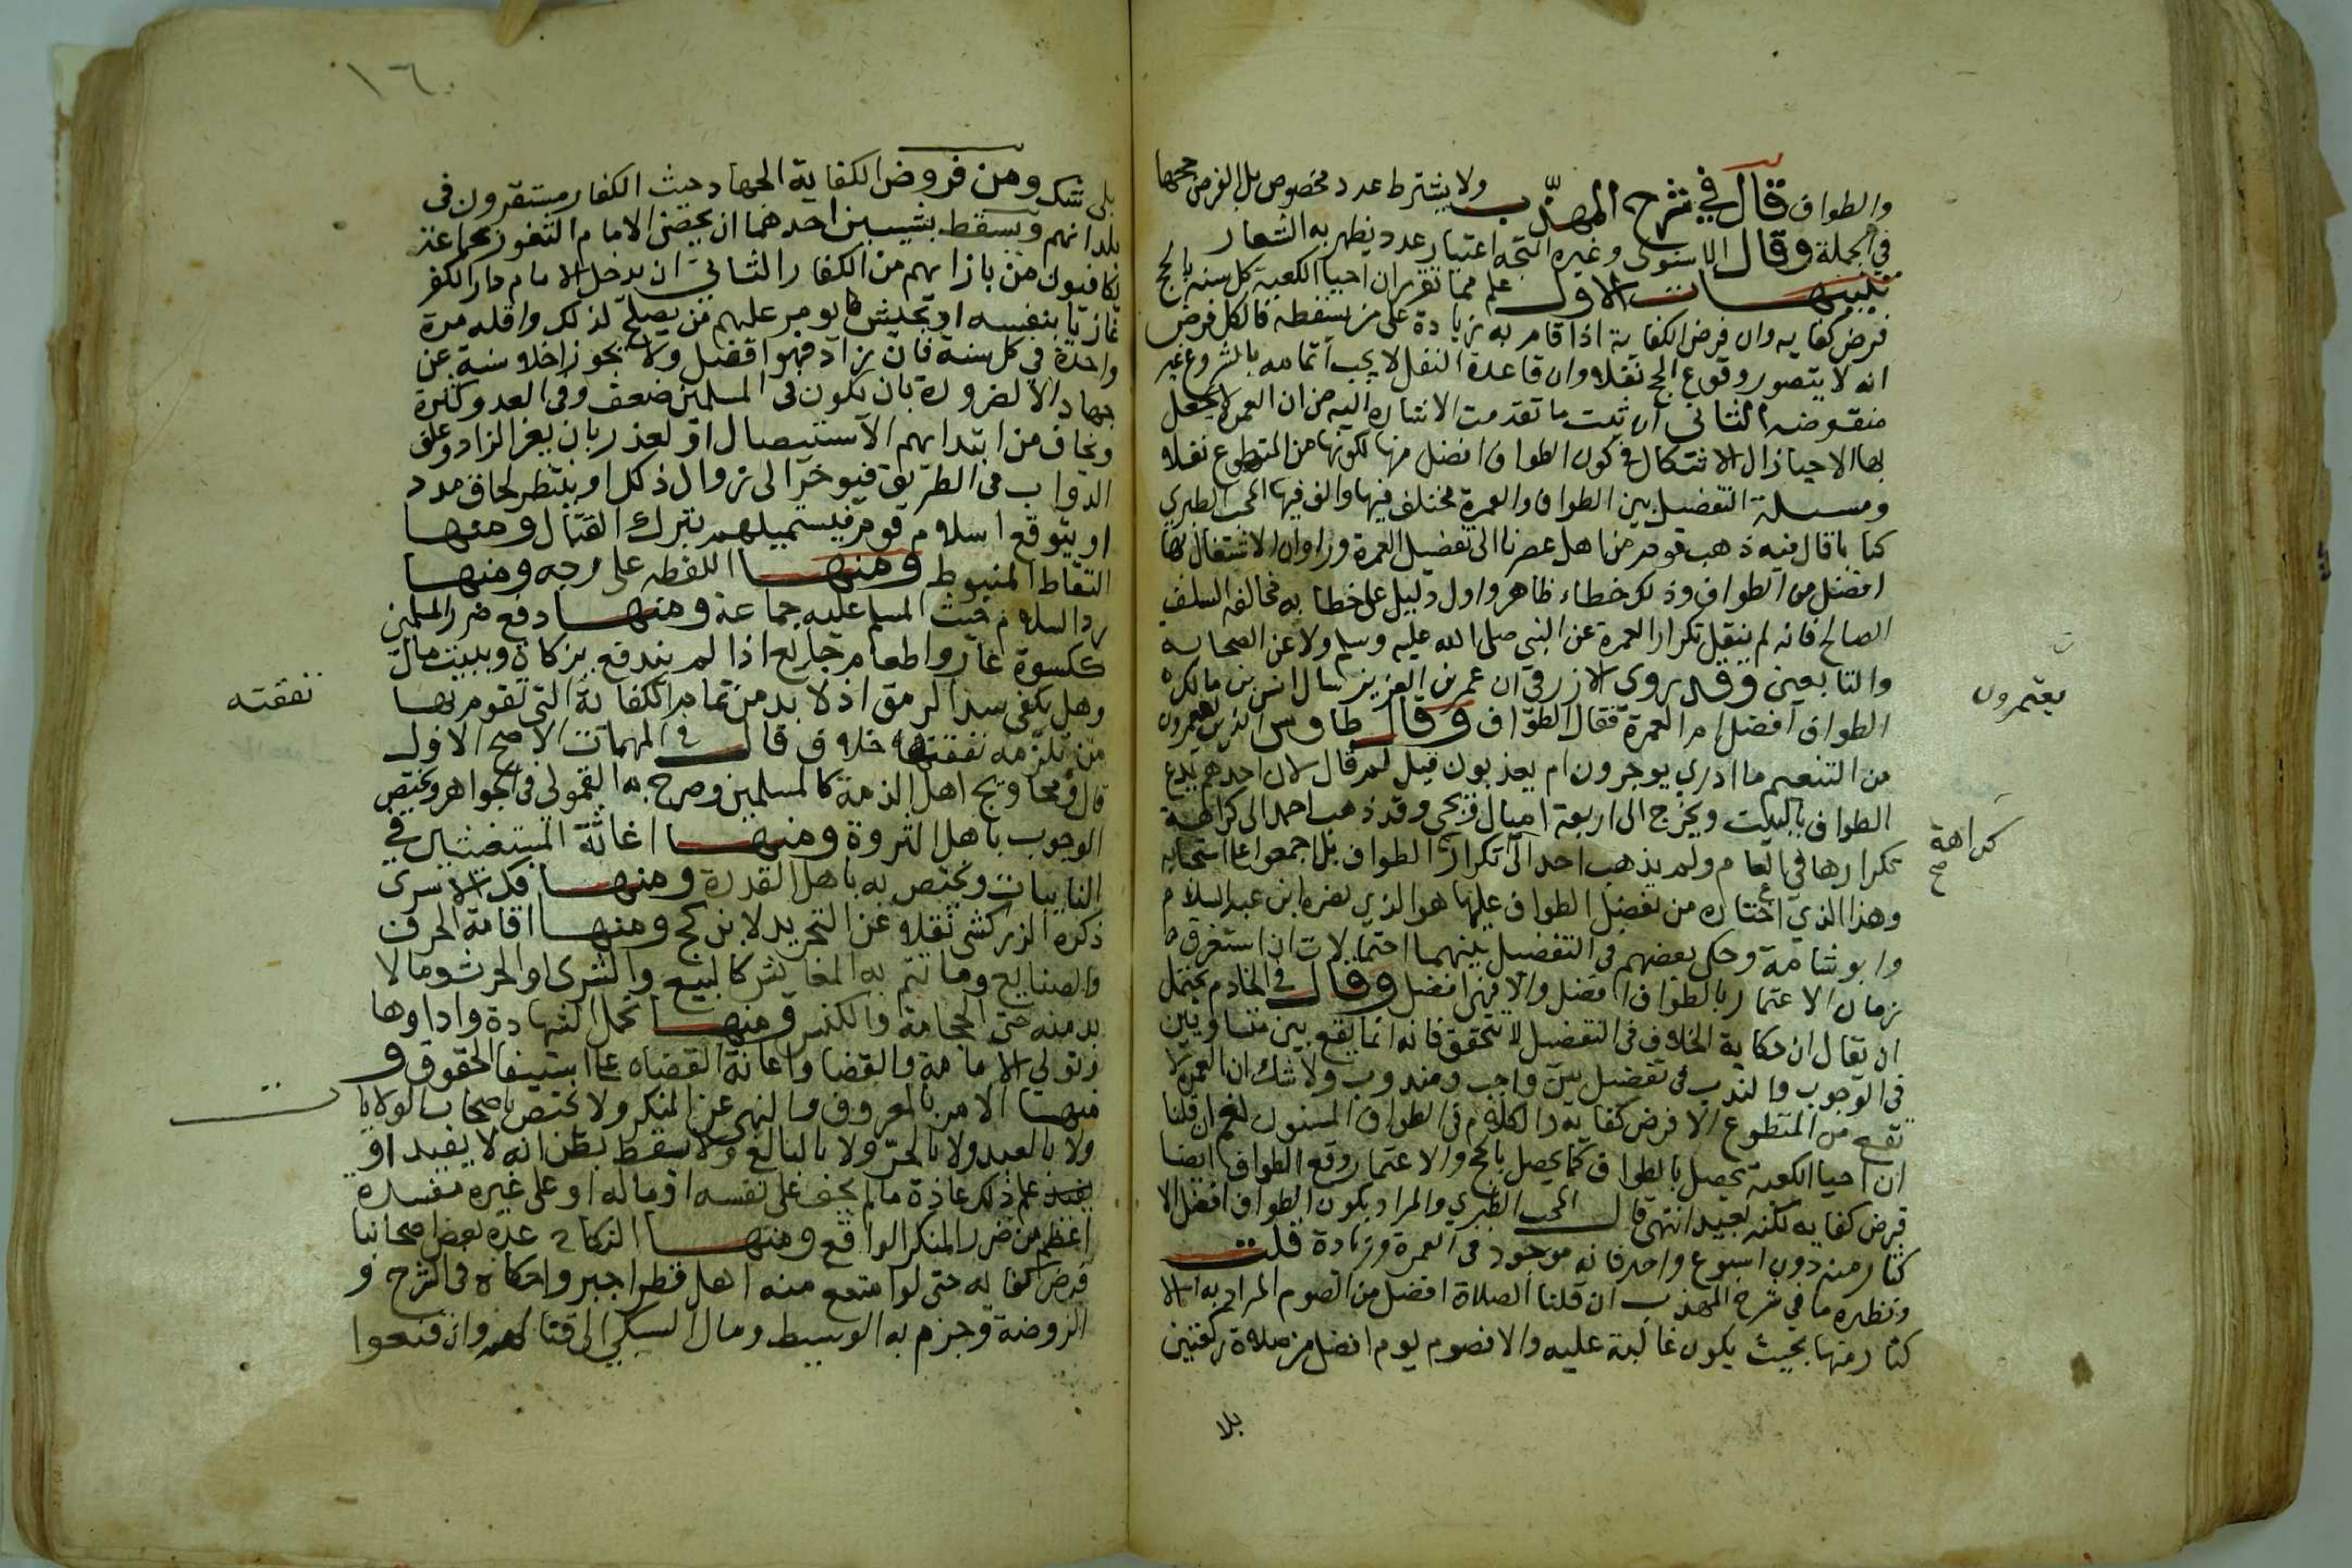 والطواف قال في شرح المهذب ولا يشترط عدد مخصوص بل الفرض حجها
في الجملة وقال الاسنوي وغيره المتجه اعتبار عدد يظهر به الشعار
تنبيهات الاول علم مما تقرر ان احيا الكعبة كل سنة بالحج
فرض كفايه وان فرض الكفاية اذا قام به زيادة على من يسقطه فالكل فرض
انه لا يتصور وقوع الحج نفلا وان قاعدة النفل لا يجب اتمامه بالشروع غير
منقوضه الثاني ان ثبت ما تقدمت الاشارة اليه من ان العمرة لا يحصل
بها الاحيا زال الاشكال في كون الطواف افضل منها لكونها من المتطوع نفلا
ومسلة التفضيل بين الطواف والعمرة مختلف فيها والف فيها المحب الطبري
كتابا قال فيه ذهب قوم من اهل عصرنا الى تفضيل العمرة وراوا ان الاشتغال بها
افضل من الطواف وذلك خطاء ظاهر واول دليل على خطا به مخالفه السلف
الصالح فانه لم ينقل تكرار العمرة عن النبي صلى الله عليه وسلم ولا عن الصحابه
والتابعين وقد روى الازرقي ان عمر بن العزيز سال انس بن مالك
الطواف افضل ام العمرة فقال الطواف وقال طاوس الذين يعمرون
من التنعيم ما ادري يوجرون ام يعذبون قيل لم قال لان احدهم يدع
الطواف بالبيت ويخرج الى اربعة اميال ويجي وقد ذهب احمد الى كراهة
تكرارها في العام ولم يذهب احد الى تكرار الطواف بل اجمعوا على استحبابه
وهذا الذي اختاره من تفضيل الطواف عليها هو الذي نصره ابن عبد السلام
وابو شامة وحكى بعضهم في التفضيل بينهما احتمالات ان استغرق
زمان الاعتمار بالطواف افضل والا فهي افضل وقال في الخادم يحتمل
ان يقال ان حكاية الخلاف في التفضيل لا تتحقق فانه انما يقع بين متساويين
في الوجوب والندب في تفضيل بين واجب ومندوب ولا شك ان العمرة لا
تقع من المتطوع الا فرض كفاية والكلام في الطواف المسنون نعم ان قلنا
ان احيا الكعبة يحصل بالطواف كما يحصل بالحج والاعتمار وقع الطواف ايضا
فرض كفايه لكنه بعيد انتهى قال المحب الطبري والمراد بكون الطواف افضل الا
كثار منه دون اسبوع واحد فانه موجود في العمرة وزيادة قلت
ونظيره ما في شرح المهذب ان قلنا الصلاة افضل من الصوم المراد به الا
كثار منها بحيث يكون غالبة عليه والا فصوم يوم افضل من صلاة ركعتين
بلا
يعتمرون
كراهة
صح
١٦٠
بلى شك ومن فروض الكفاية الجهاد حيث الكفار مستقرون في
بلدانهم ويسقط بشيين احدهما ان يحصن الامام الثغور بجماعة
يكافيون من بازايهم من الكفار الثاني ان يدخل الامام دار الكفر
غازيا بنفسه او بجيش يومر عليهم من يصلح لذلك واقله مرة
واحدة في كل سنة فان زاد فهو افضل ولا يجوز اخلا سنة عن
جهاد الا لضرورة بان يكون في المسلمين ضعف وفي العدو كثرة
ويخاف من ابتدايهم الاستيصال او لعذر بان يعز الزاد وعلف
الدواب في الطريق فيوخر الى زوال ذلك او ينتظر لحاق مدد
او يتوقع اسلام قوم فيستميلهم بترك القتال ومنها
التقاط المنبوذ ومنها اللقطه على وجه ومنها
رد السلام حيث المسلم عليه جماعة ومنها دفع ضرر المسلمين
ككسوة عار واطعام جايع اذا لم يندفع بزكاة وبيت مال
وهل يكفى سد الرمق اذ لا بد من تمام الكفاية التي تقوم بها
من تلزمه نفقتها خلاف قال في المهمات الاصح الاول
قال ومحاويج اهل الذمة كالمسلمين وصرح به القمولي في الجواهر ويختص
الوجوب باهل الثروة ومنها اغاثة المستغيثين في
النايبات ويختص به باهل القدرة ومنها فك الاسرى
ذكره الزركشي نقلا عن التجريد لابن كج ومنها اقامة الحرف
والصنايع وما تتم به المعايش كالبيع والشرى والحرث وما لا
بد منه حتى الحجامة والكنس ومنها تحمل الشهادة واداوها
وتولي الامامة والقضا واعانة القضاه على استيفا الحقوق و
منها الامر بالمعروف والنهي عن المنكر ولا يختص باصحاب الولايات
ولا بالعبد ولا بالحر ولا بالبالغ ولا يسقط بظن انه لا يفيد او
يفيد علم ذلك عادة ما لم يخف على نفسه او ماله او على غيره مفسدة
اعظم من ضرر المنكر الواقع ومنها النكاح عده بعض اصحابنا
فرض كفاية حتى لو امتنع منه اهل قطر اجبروا حكاه في الشرح و
الروضة وجزم به الوسيط ومال السبكي الى قتالهم وان قنعوا
نفقته